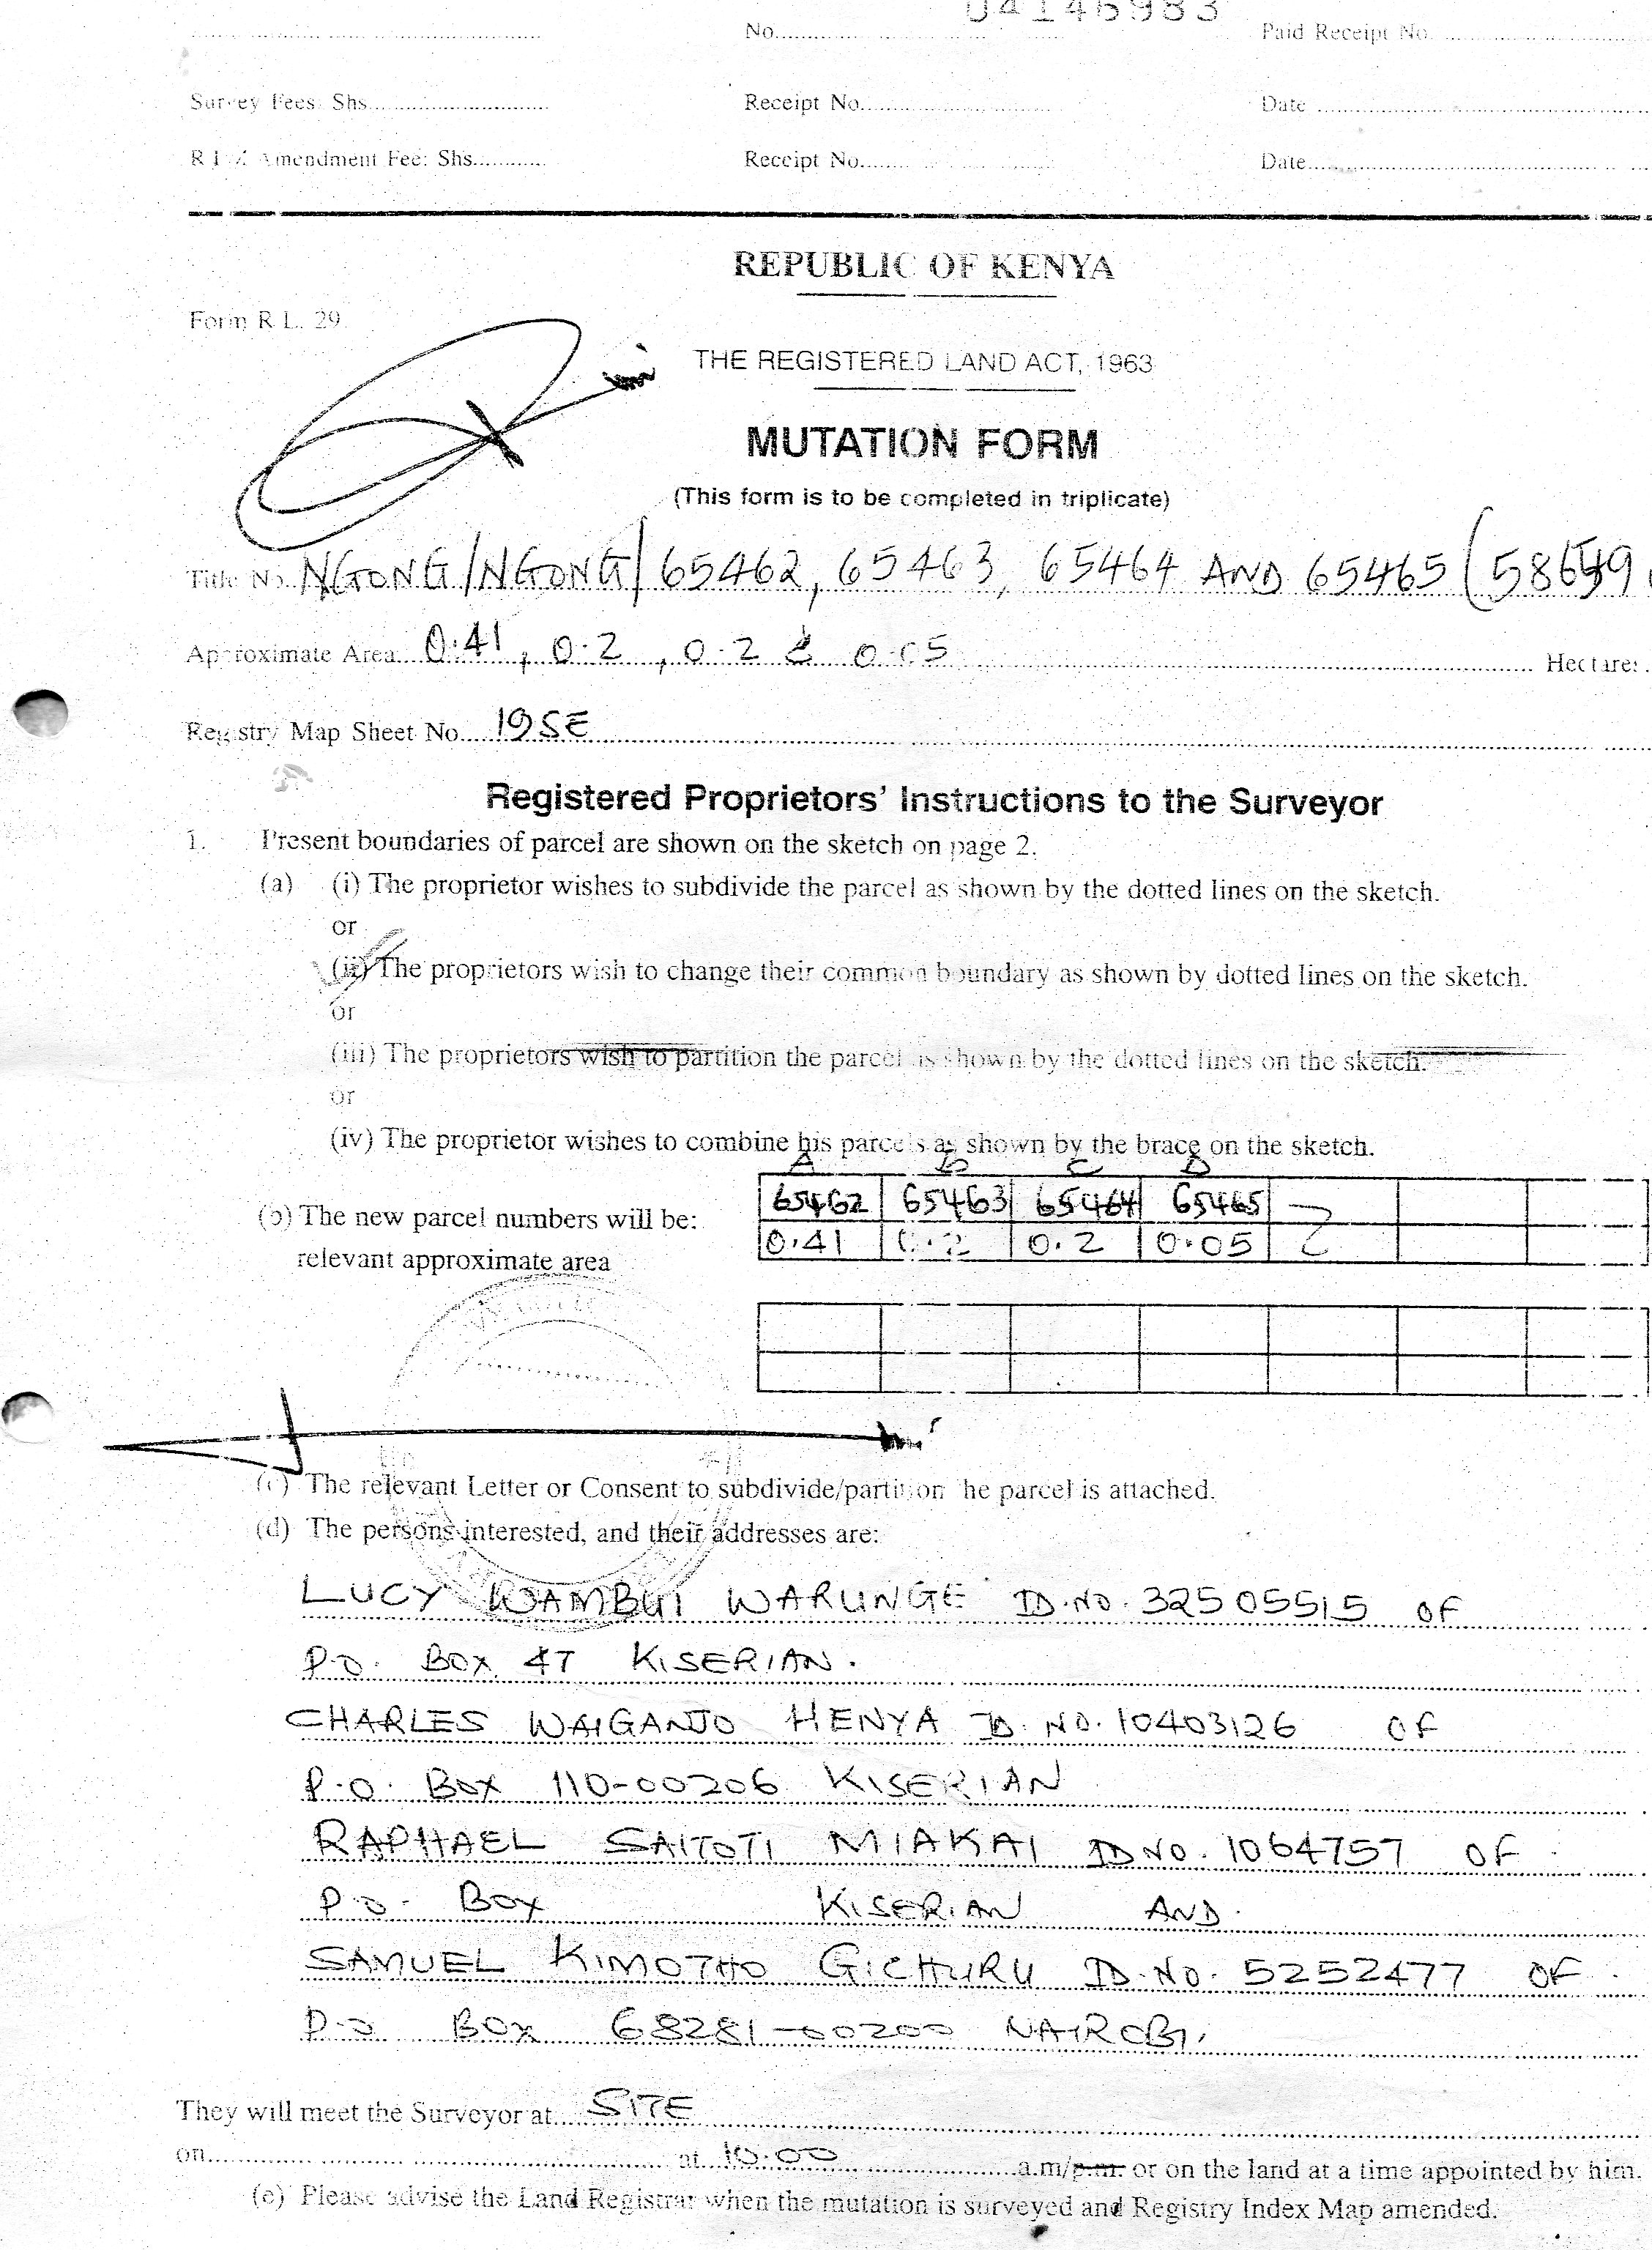 04146983
No.
Paid Receipt No.
Survey Fees: Shs.
Receipt No.
Date
Amendment Fee: Shs.
Receipt No.
Date
REPUBLIC OF KENYA
Form R.L. 29
THE REGISTERED LAND ACT, 1963
MUTATION FORM
(This form is to be completed in triplicate)
Title No. NGONG/NGONG/65462, 65463, 65464 AND 65465 (
Approximate Area 0.41, 0.2, 0.2 & 0.05 Hectares
Registry Map Sheet No. 19SE
Registered Proprietors' Instructions to the Surveyor
1. Present boundaries of parcel are shown on the sketch on page 2.
(a) (i) The proprietor wishes to subdivide the parcel as shown by the dotted lines on the sketch.
or
(ii) The proprietors wish to change their common boundary as shown by dotted lines on the sketch.
or
(iii) The proprietors wish to partition the parcel as shown by the dotted lines on the sketch.
or
(iv) The proprietor wishes to combine his parcels as shown by the brace on the sketch.
A B C D
(b) The new parcel numbers will be: 65462 65463 65464 65465
relevant approximate area 0.41 0.2 0.2 0.05
(c) The relevant Letter or Consent to subdivide/partition the parcel is attached.
(d) The persons interested, and their addresses are:
LUCY WAMBUI WARUNGE ID.NO. 32505515 OF
P.O. BOX 47 KISERIAN.
CHARLES WAIGANJO HENYA ID. NO. 10403126 OF
P.O. BOX 110-00206 KISERIAN
RAPHAEL SAITOTI MIAKAI ID NO. 1064757 OF
P.O. BOX KISERIAN AND
SAMUEL KIMOTHO GICHURU ID.NO. 5252477 OF
P.O BOX 68281-00200 NAIROBI.
They will meet the Surveyor at SITE
on at 10.00 a.m/p.m. or on the land at a time appointed by him.
(e) Please advise the Land Registrar when the mutation is surveyed and Registry Index Map amended.